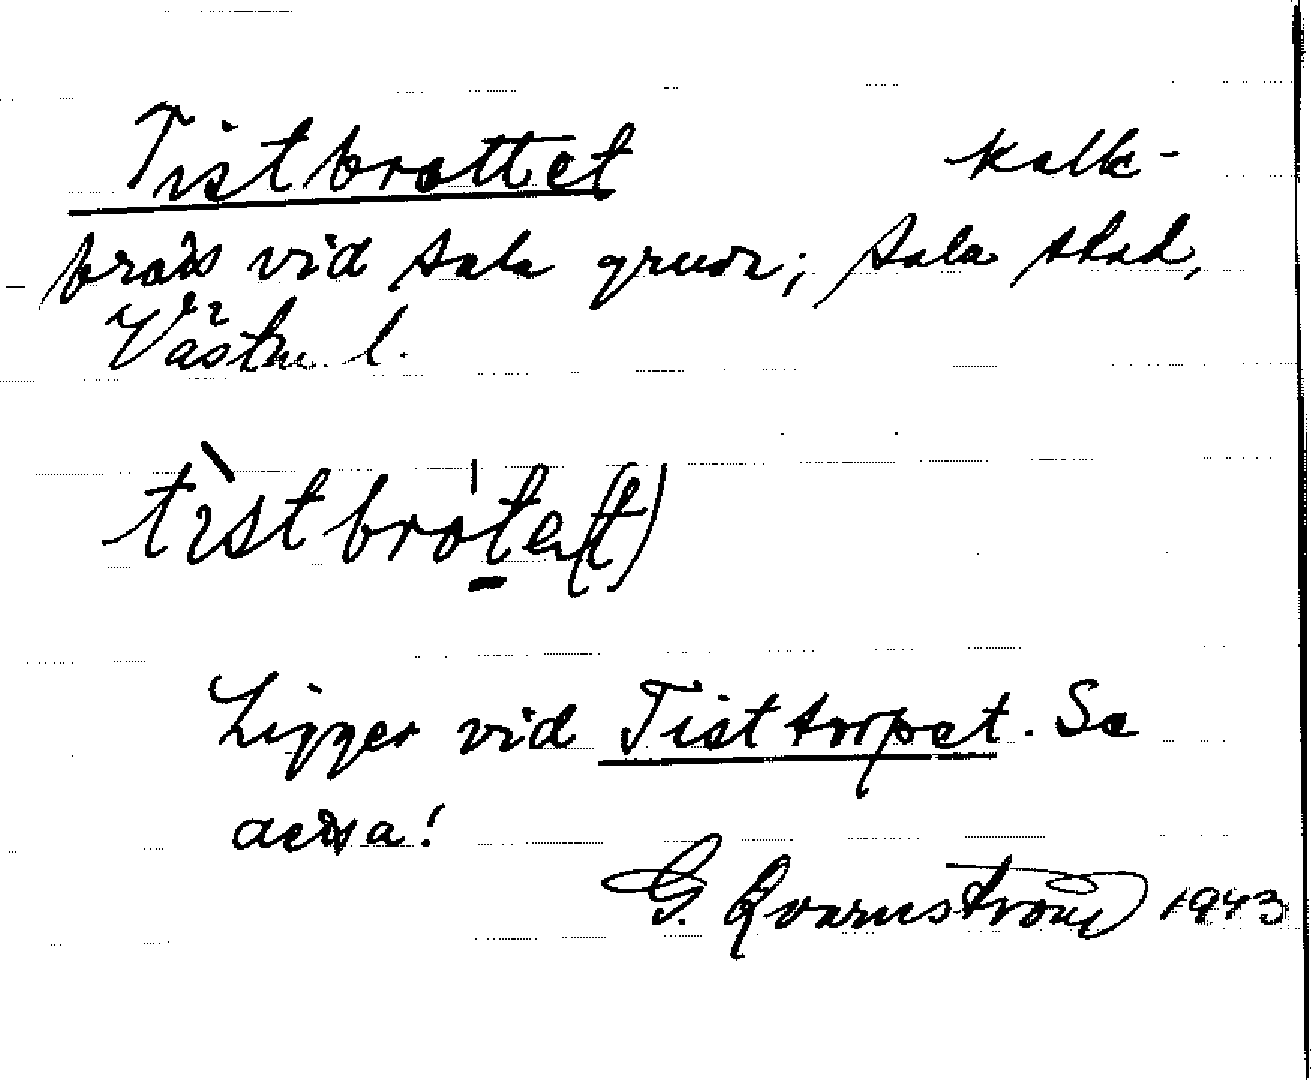 Tistbrottet kalk-
brott vid Sala gruva; Sala stad,
Västm. l.
tìstbròte(t)
Ligger vid Tisttorpet. Se
detta!
G. Kvarnström 1943